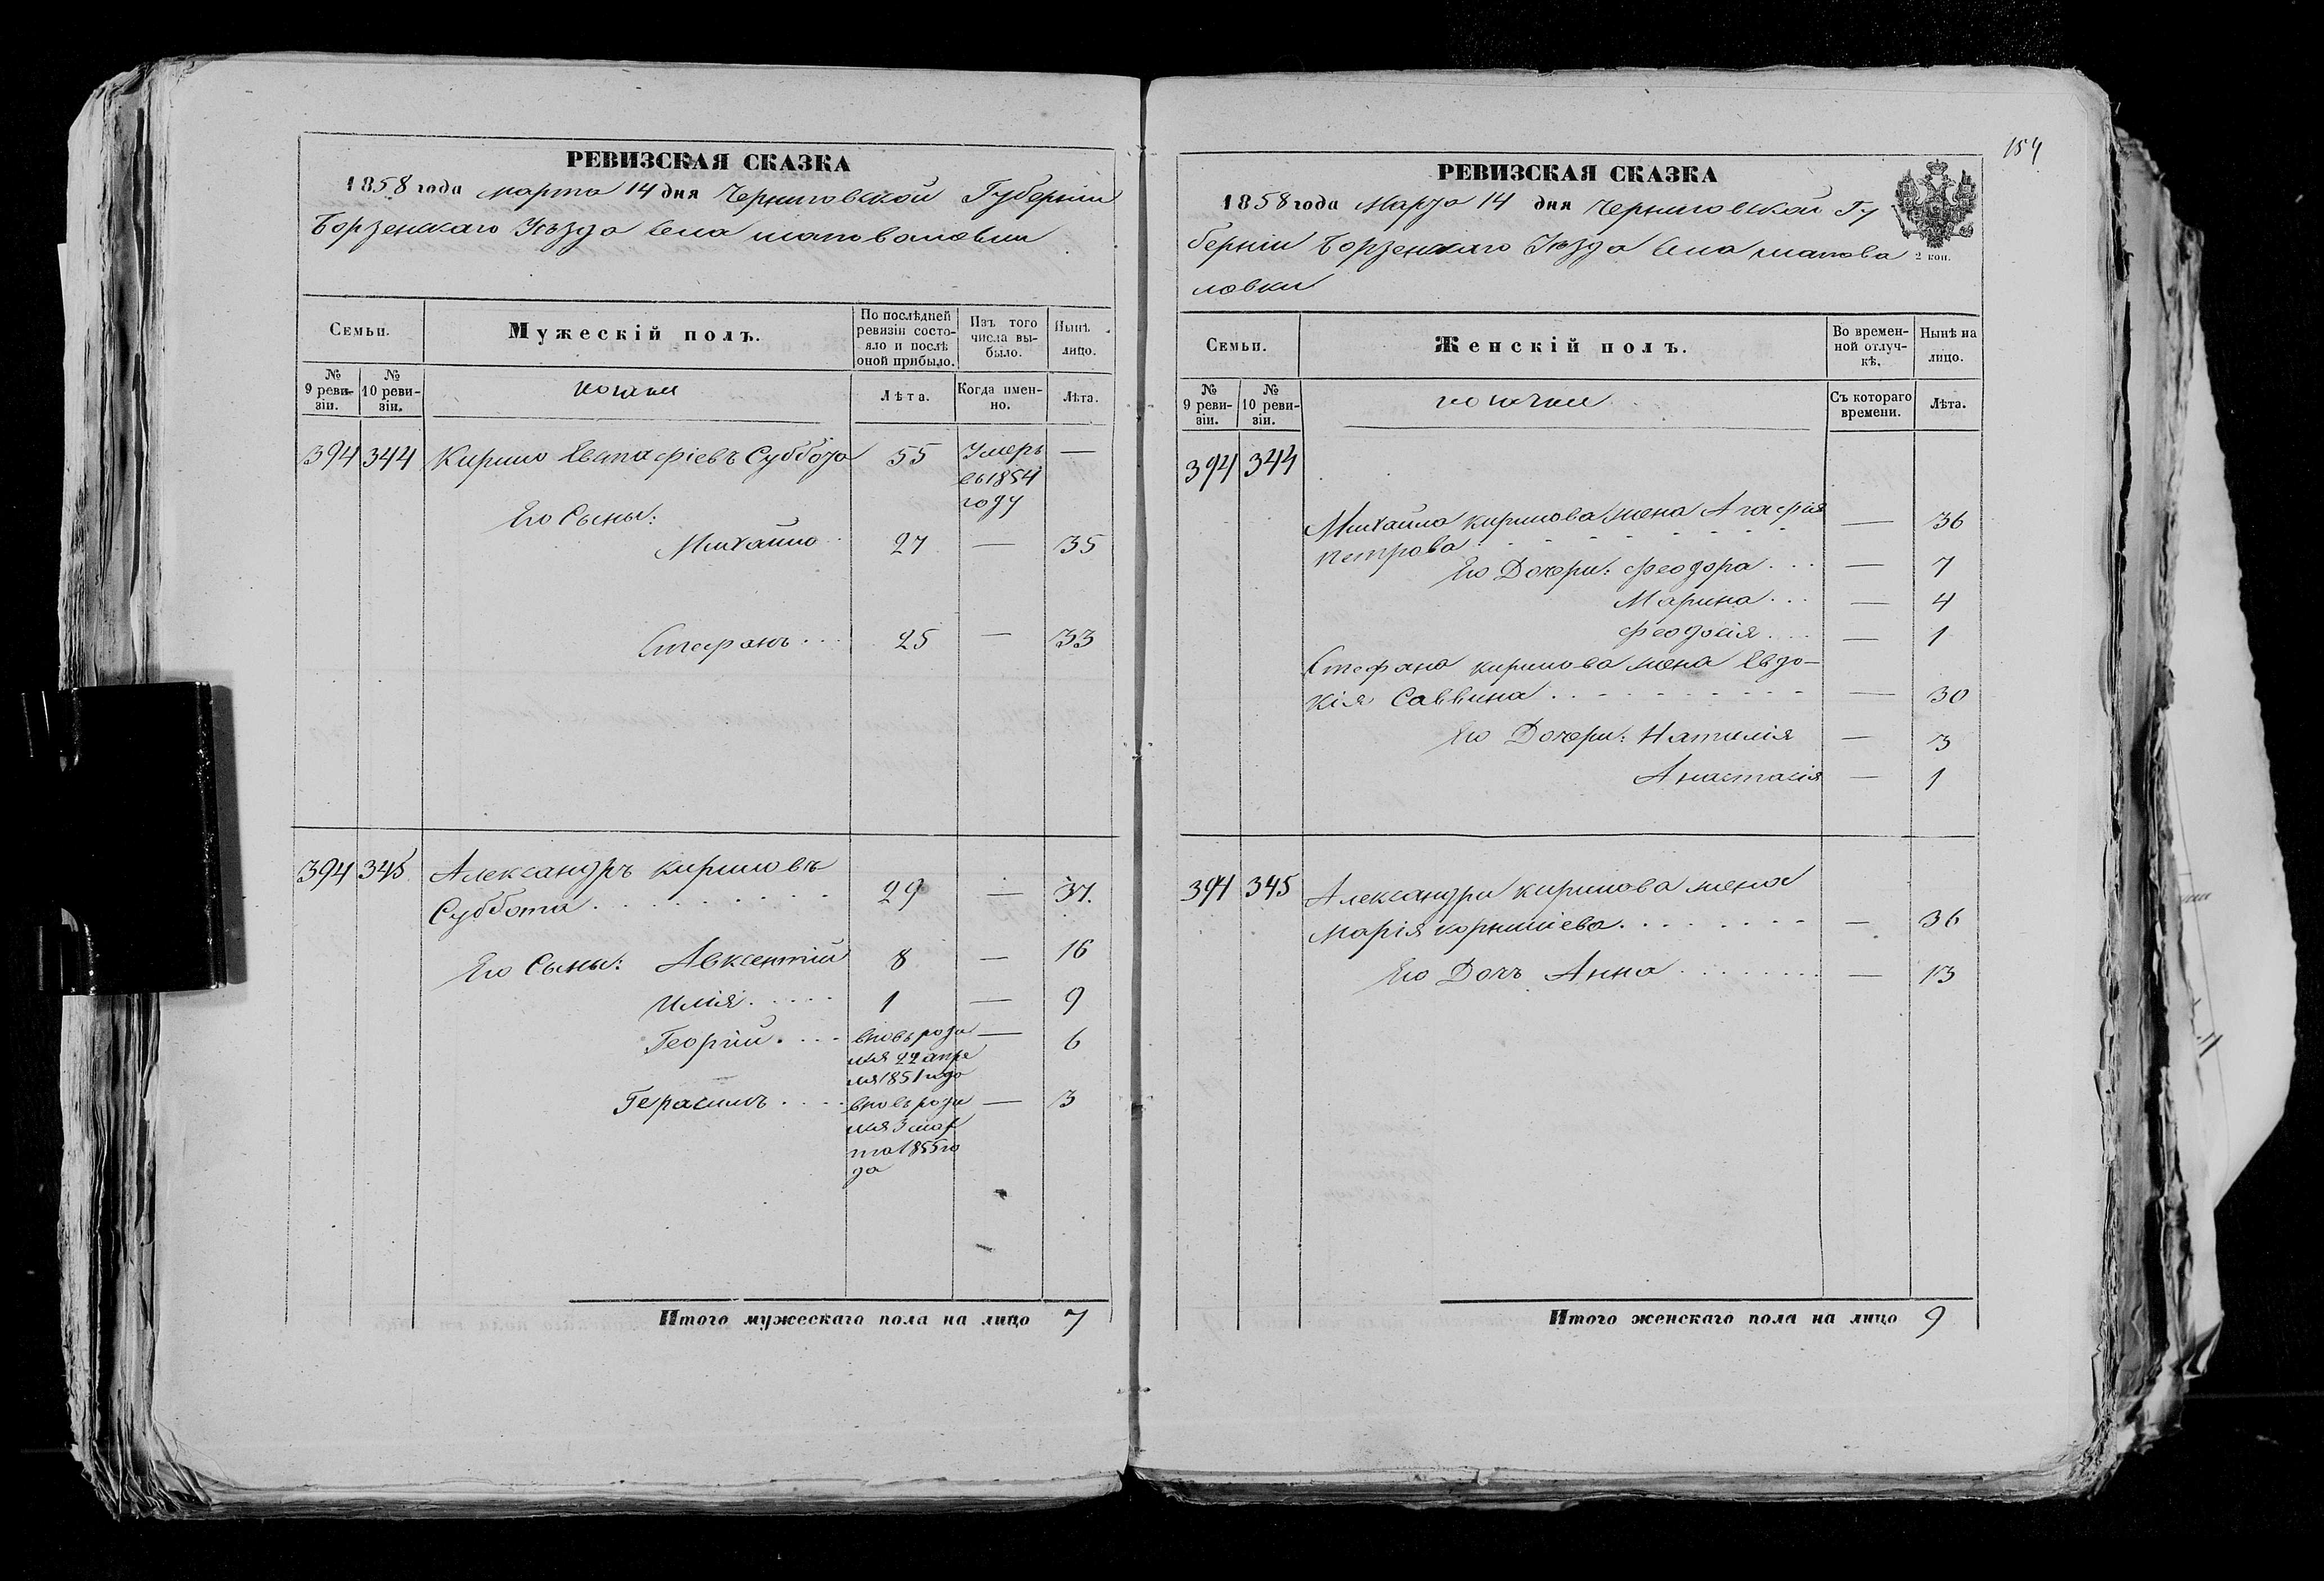 154
РЕВИЗСКАЯ СКАЗКА
1858 года марта 14 дня Черниговской Губерніи
Борзенскаго Уѣзда Села шаповаловки
Семьи.
Мужескій полъ.
По послѣдней ревизіи состояло и послѣ оной прибыло.
Изъ того числа выбыло.
Нынѣ лицо.
№ 9 ревизіи.
№ 10 ревизіи.
козаки
Лѣта.
Когда именно.
Лѣта.
394 344 Кирило Евстафіевъ Суббота 55 Умеръ —
въ 1854
году
Его Сыны:
Михайло 27 — 35
Стефанъ . . . 25 — 33
394 345 Александръ кириловъ
Суббота . . . . . . . . . 29 — 37.
Его Сыны: Авксентій 8 — 16
Илія . . . . . 1 — 9
Георгій . . . . вновь роди — 6
лся 22 апре
ля 1851 года
Герасимъ . . . . вновь роди — 3
лся 3 мар
та 1855 го
да
Итого мужескаго пола на лицо 7
РЕВИЗСКАЯ СКАЗКА
1858 года Марта 14 дня Черниговской Гу
берніи Борзенскаго Уѣзда Села шапова
ловки
2 коп.
Семьи.
Женскій полъ.
Во временной отлучкѣ.
Нынѣ на лицо.
№ 9 ревизіи.
№ 10 ревизіи.
козачки
Съ котораго времени.
Лѣта.
394 344
Михайла кирилова жена Агафія — 36
петрова . . . . . . . . .
Его Дочери: феодора . . . — 7
Марина . . . — 4
феодосія . . . . — 1
Стефана кирилова жена Евдо-
кія Саввина . . . . . . . . . . — 30
Его Дочери: Наталія — 3
Анастасія — 1
394 345 Александра кирилова жена
Марія корниліева . . . . . . . . — 36
Его Дочь Анна . . . . . . . . — 13
Итого женскаго пола на лицо 9